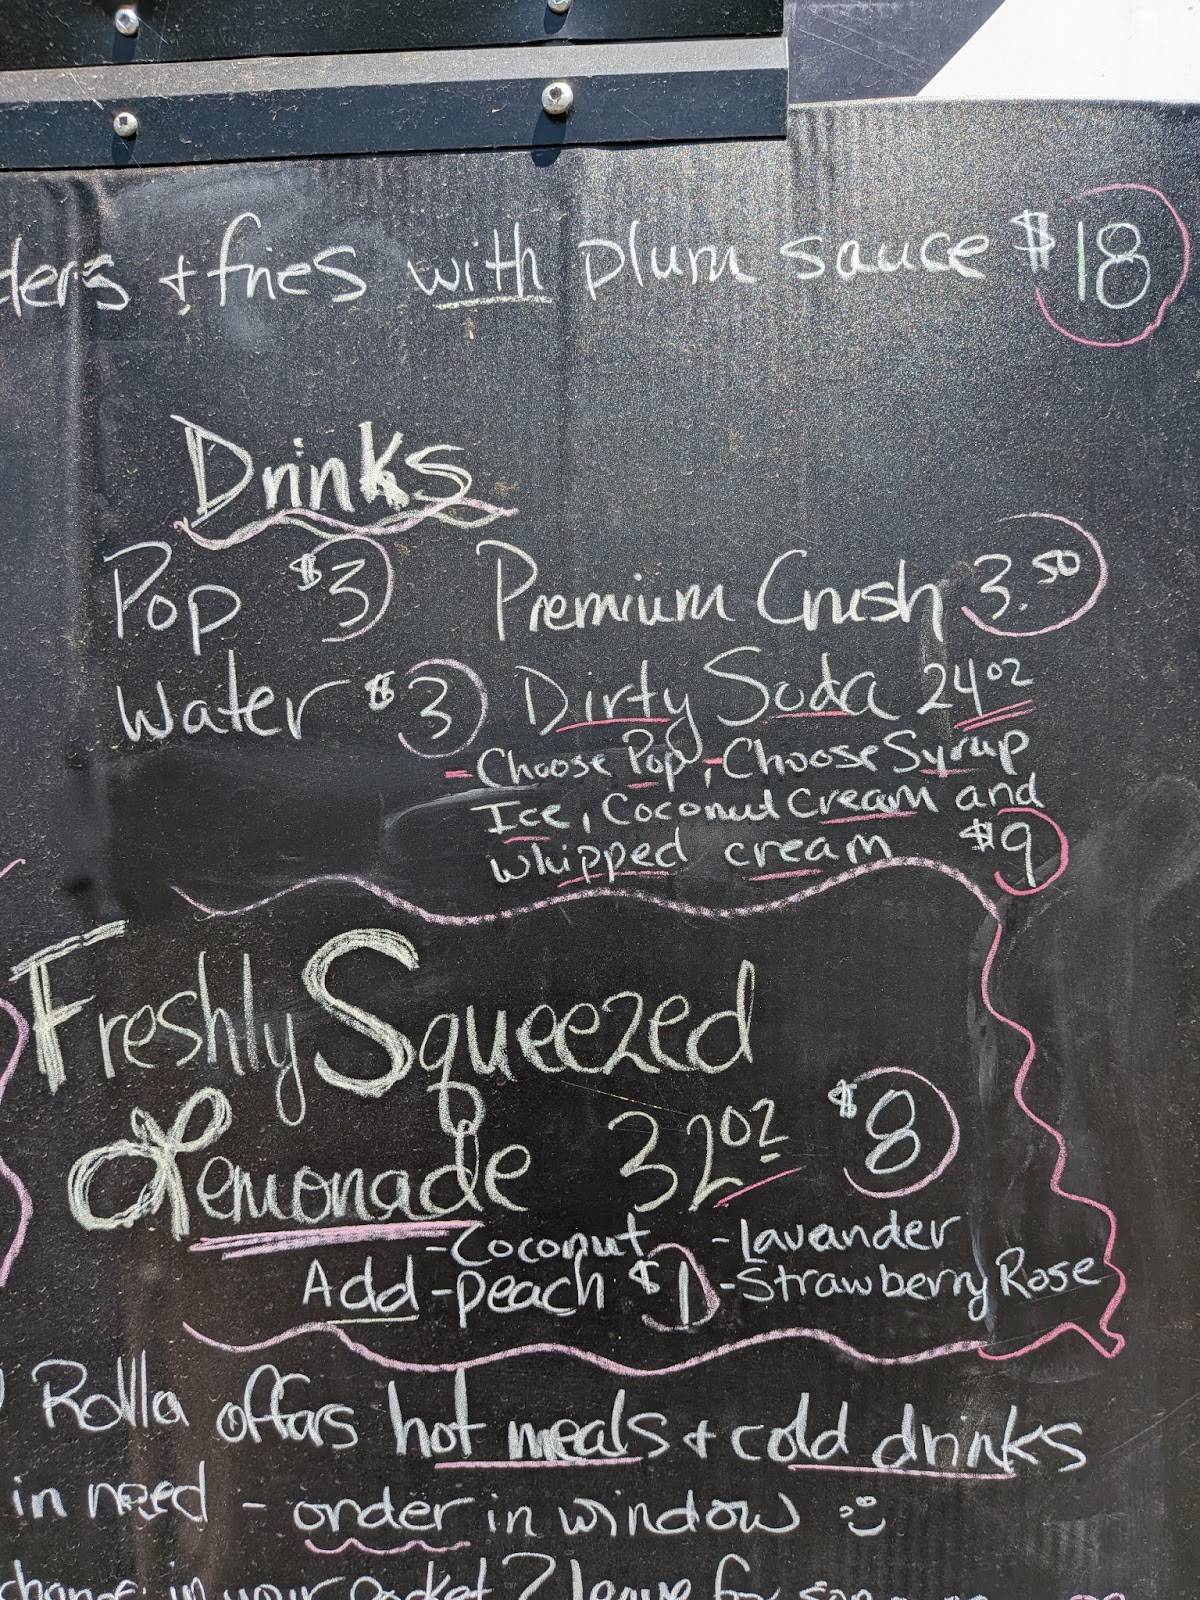 ders + fries with plum sauce $18
Drinks
Pop $3 Premium Crush 3.50
Water $3 Dirty Soda 24oz
- Choose Pop, - Choose Syrup
Ice, Coconut Cream and
whipped cream $9
Freshly Squeezed
Lemonade 32oz $8
- Coconut - Lavander
Add - peach $1 - Strawberry Rose
Rolla offers hot meals + cold drinks
in need - order in window
change in your pocket? leave for